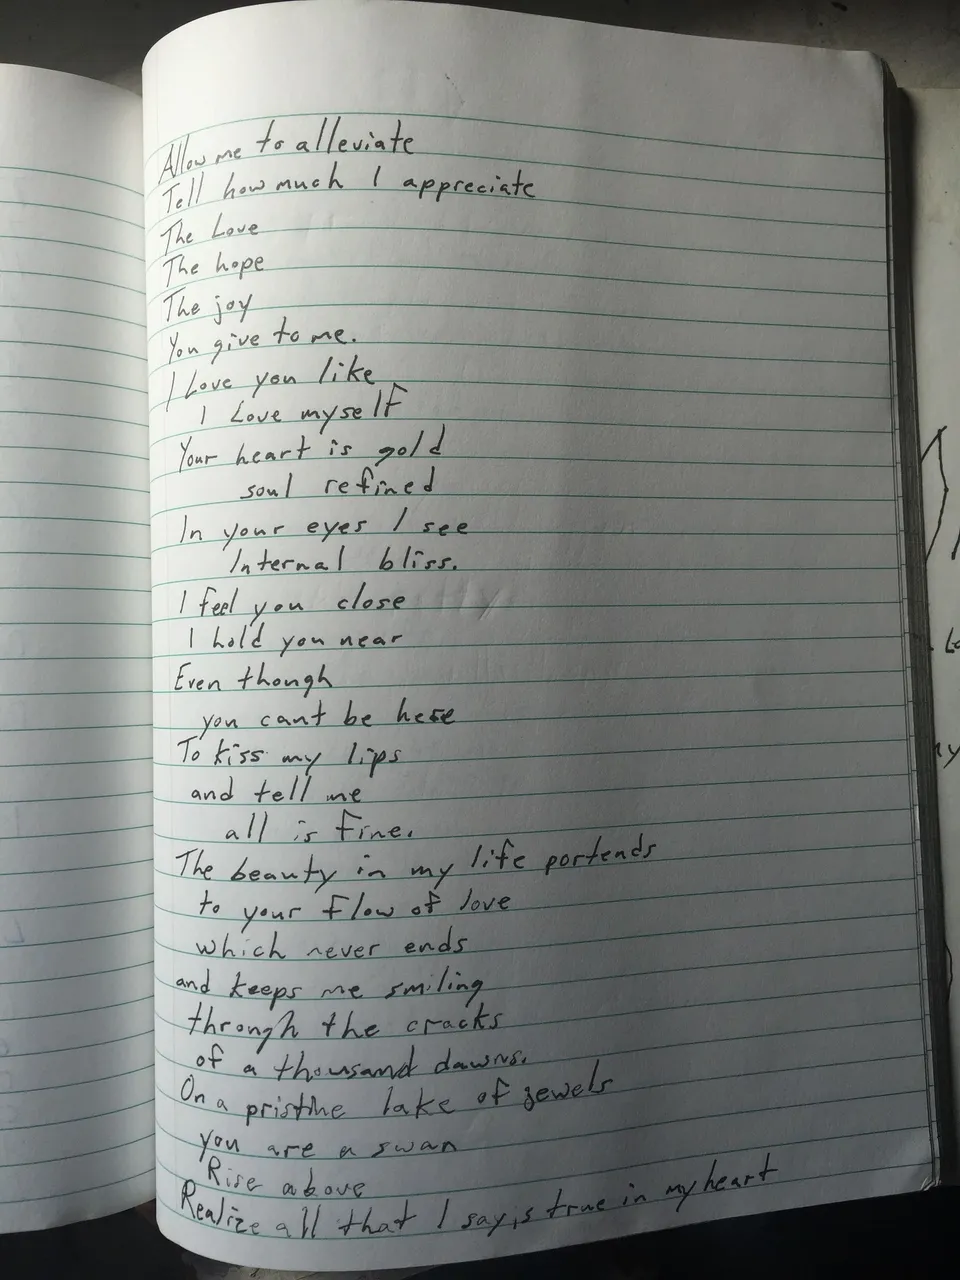 Allow me to alleviate
Tell how much I appreciate
The Love
The hope
The joy
You give to me.
I Love you like
I Love myself
Your heart is gold
soul refined
In your eyes I see
Internal bliss.
I feel you close
I hold you near
Even though
you cant be here
To kiss my lips
and tell me
all is fine.
The beauty in my life portends
to your flow of love
which never ends
and keeps me smiling
through the cracks
of a thousand dawns.
On a pristine lake of jewels
you are a swan
Rise above
Realize all that I say, is true in my heart